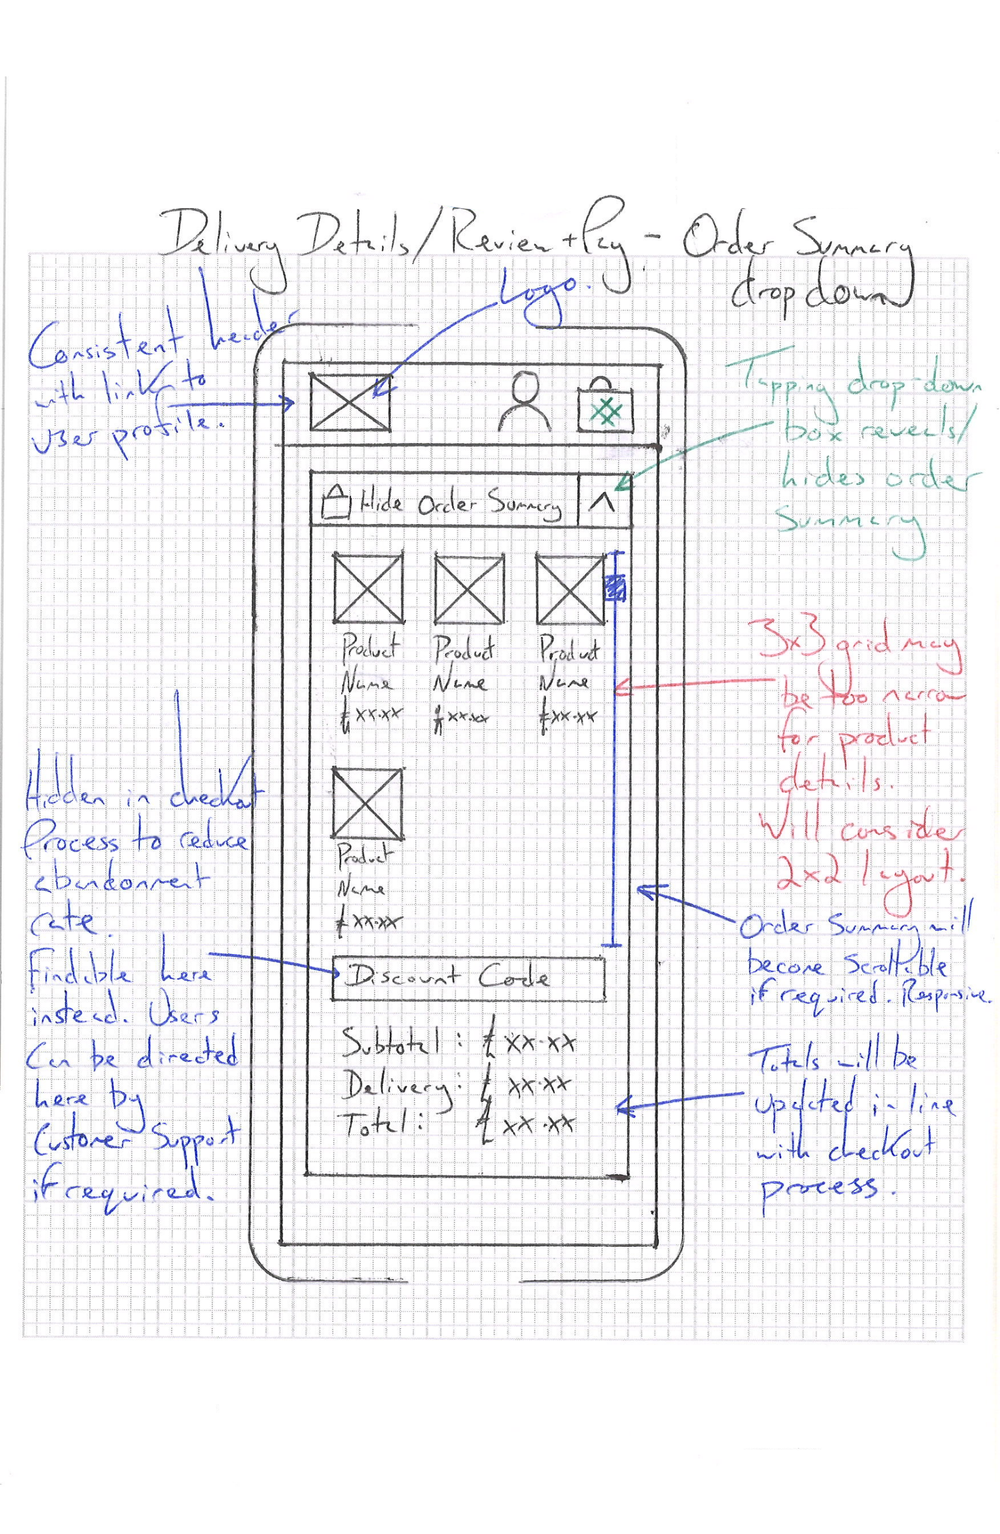 Delivery Details/Review + Pay - Order Summary
dropdown
Logo.
Consistent header
with link to
user profile.
Tapping drop-down
box reveals/
hides order
Summary
Hide Order Summary
Product Product Product
Name Name Name
£xx.xx £xx.xx £xx.xx
3x3 grid may
be too narrow
for product
details.
Will consider
2x2 layout.
Product
Name
£xx.xx
Hidden in checkout
Process to reduce
abandonment
rate.
Findable here
instead. Users
Can be directed
here by
Customer Support
if required.
Order Summary will
become Scrollable
if required. Responsive.
Discount Code
Subtotal: £xx.xx
Delivery: £xx.xx
Total: £xx.xx
Totals will be
updated in-line
with checkout
process.